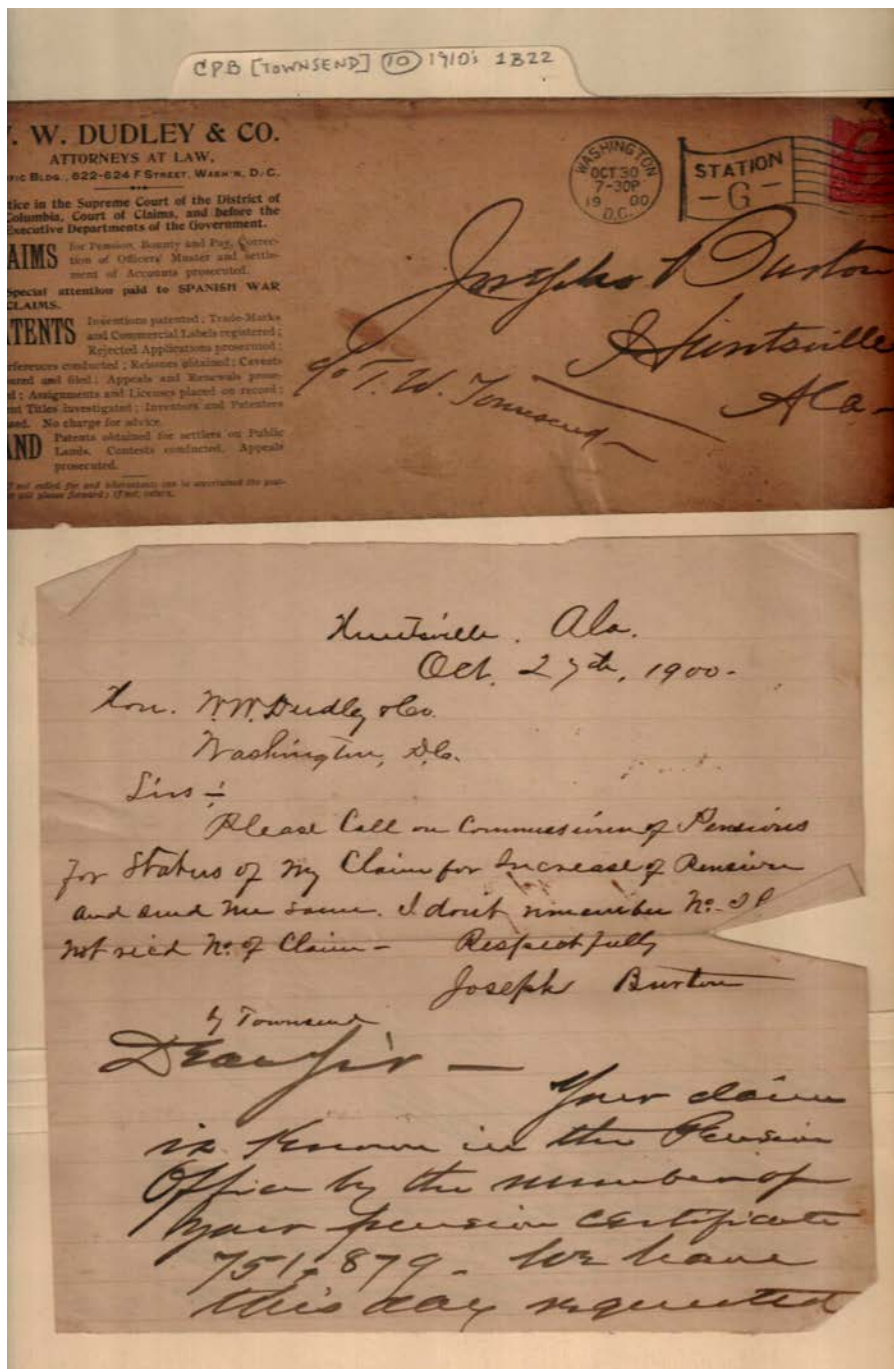 CPB [TOWNSEND] 10 1910's 1B22
. W. DUDLEY & CO.
ATTORNEYS AT LAW,
FIC BLDG., 622-624 F STREET, WASH'N, D. C.
tice in the Supreme Court of the District of
Columbia, Court of Claims, and before the
Executive Departments of the Government.
AIMS for Pension, Bounty and Pay, Correc-
tion of Officers' Muster and settle-
ment of Accounts prosecuted.
Special attention paid to SPANISH WAR
CLAIMS.
TENTS Inventions patented; Trade-Marks
and Commercial Labels registered;
Rejected Applications prosecuted;
rferences conducted; Reissues obtained; Caveats
ared and filed; Appeals and Renewals prose-
d; Assignments and Licenses placed on record;
nt Titles investigated; Inventors and Patentees
sed. No charge for advice.
AND Patents obtained for settlers on Public
Lands. Contests conducted. Appeals
prosecuted.
If not called for and whereabouts can be ascertained the post-
will please forward; if not, return.
WASHINGTON
OCT 30
7-30P
19 00
D.C.
STATION
-G-
Joseph Burton
Huntsville
Ala-
c/o T. W. Townsend
Huntsville. Ala.
Oct. 27th, 1900.
Hon. W.W. Dudley & Co.
Washington, D.C.
Sirs:
Please Call on Commissioner of Pensions
for Status of my Claim for Increase of Pension
and send me same. I don't remember No.
not recd No. of Claim- Respectfully
Joseph Burton
by Townsend
Dear Sir —
Your claim
is known in the Pension
Office by the number of
your pension certificate
751,879. We have
this day requested